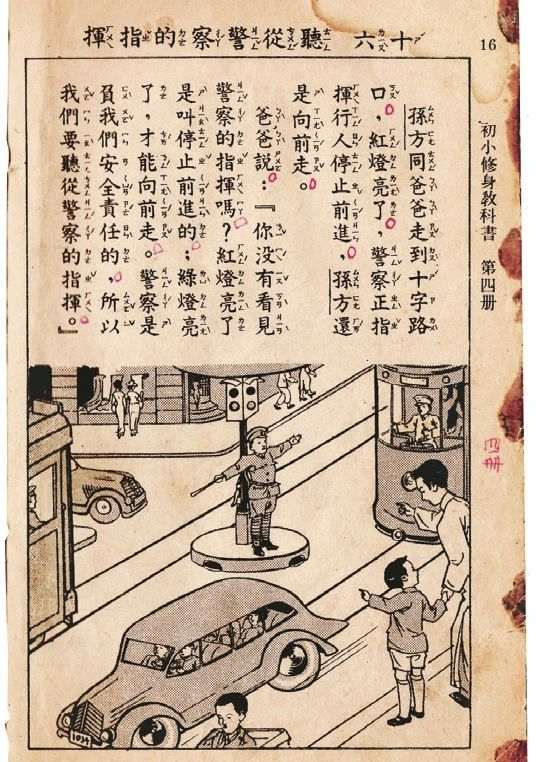 十六 聽從警察的指揮
孫方同爸爸走到十字路
口，紅燈亮了，警察正指
揮行人停止前進，孫方還
是向前走。
爸爸說：『你没有看見
警察的指揮嗎？紅燈亮了
是叫停止前進的：綠燈亮
了，才能向前走。警察是
負我們安全責任的，所以
我們要聽從警察的指揮。』
16
初小修身教科書 第四册
四册
1034